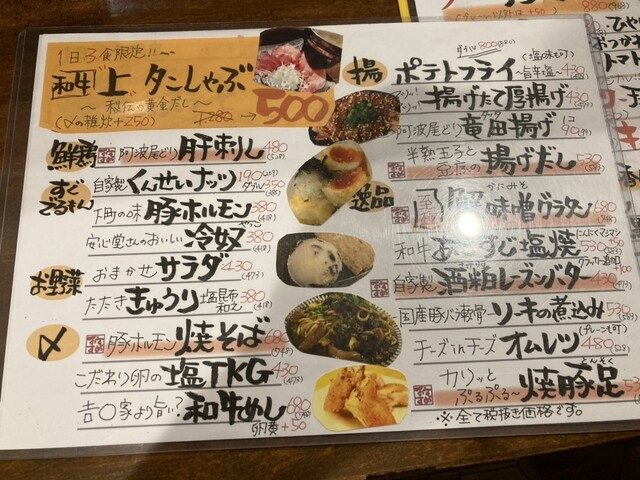 1日3食限定!!
和牛 上 タンしゃぶ
〜秘伝の黄金だし〜
(〆の雑炊+250) 500
鮮鶏 阿波尾どり 肝刺し 480 (528)
すぐでるもん 自家製 くんせいナッツ 190 ダブル350
大町の味 豚ホルモン 380 (418)
安心堂さんのおいしい 冷奴 380 (418)
お野菜 おまかせ サラダ 430 (473)
たたき きゅうり 塩昆布和え 380 (418)
〆 豚ホルモン 焼そば 680 (748)
こだわり卵の 塩TKG 430 (473)
吉〇家より旨い? 和牛めし 680
卵黄+50
ダブル 800
揚 ポテトフライ (塩味も可) 旨辛塩 430
揚げたて厚揚げ 430 (473)
阿波尾どり 竜田揚げ 1コ 90
半熟玉子と 揚げだし 530
逸品 かにみそ 味噌グラタン 680 (748)
和牛 すじ塩焼 530
自家製 酒粕レーズンバター 430 (473)
国産豚バラ軟骨 ソーキの煮込み 530
チーズinチーズ オムレツ (プレーンも可) 480 (528)
カリッとぷるぷる〜 とんそく 焼豚足 530
※全て税抜き価格です。